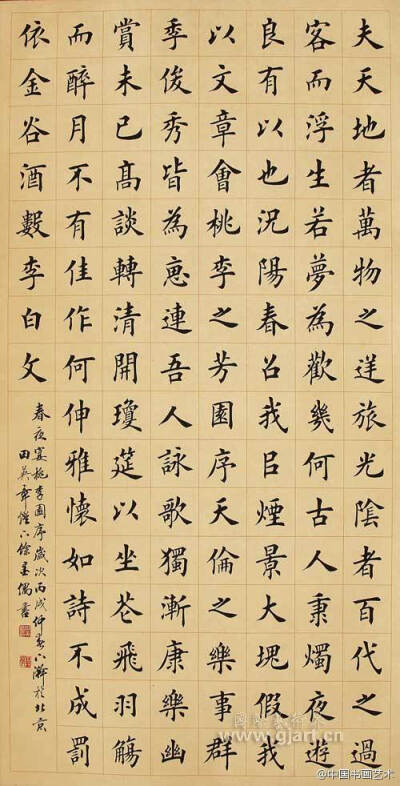 夫天地者萬物之逆旅光陰者百代之過
客而浮生若夢為歡幾何古人秉燭夜遊
良有以也況陽春召我㠯煙景大塊假我
以文章會桃李之芳園序天倫之樂事群
季俊秀皆為惠連吾人詠歌獨慚康樂幽
賞未已高談轉清開瓊筵以坐花飛羽觴
而醉月不有佳作何伸雅懷如詩不成罰
依金谷酒數李白文
春夜宴桃李園序歲次丙戌仲夏下澣於北京
田英章餘墨偶書
www.gjart.cn
@中国书画艺术